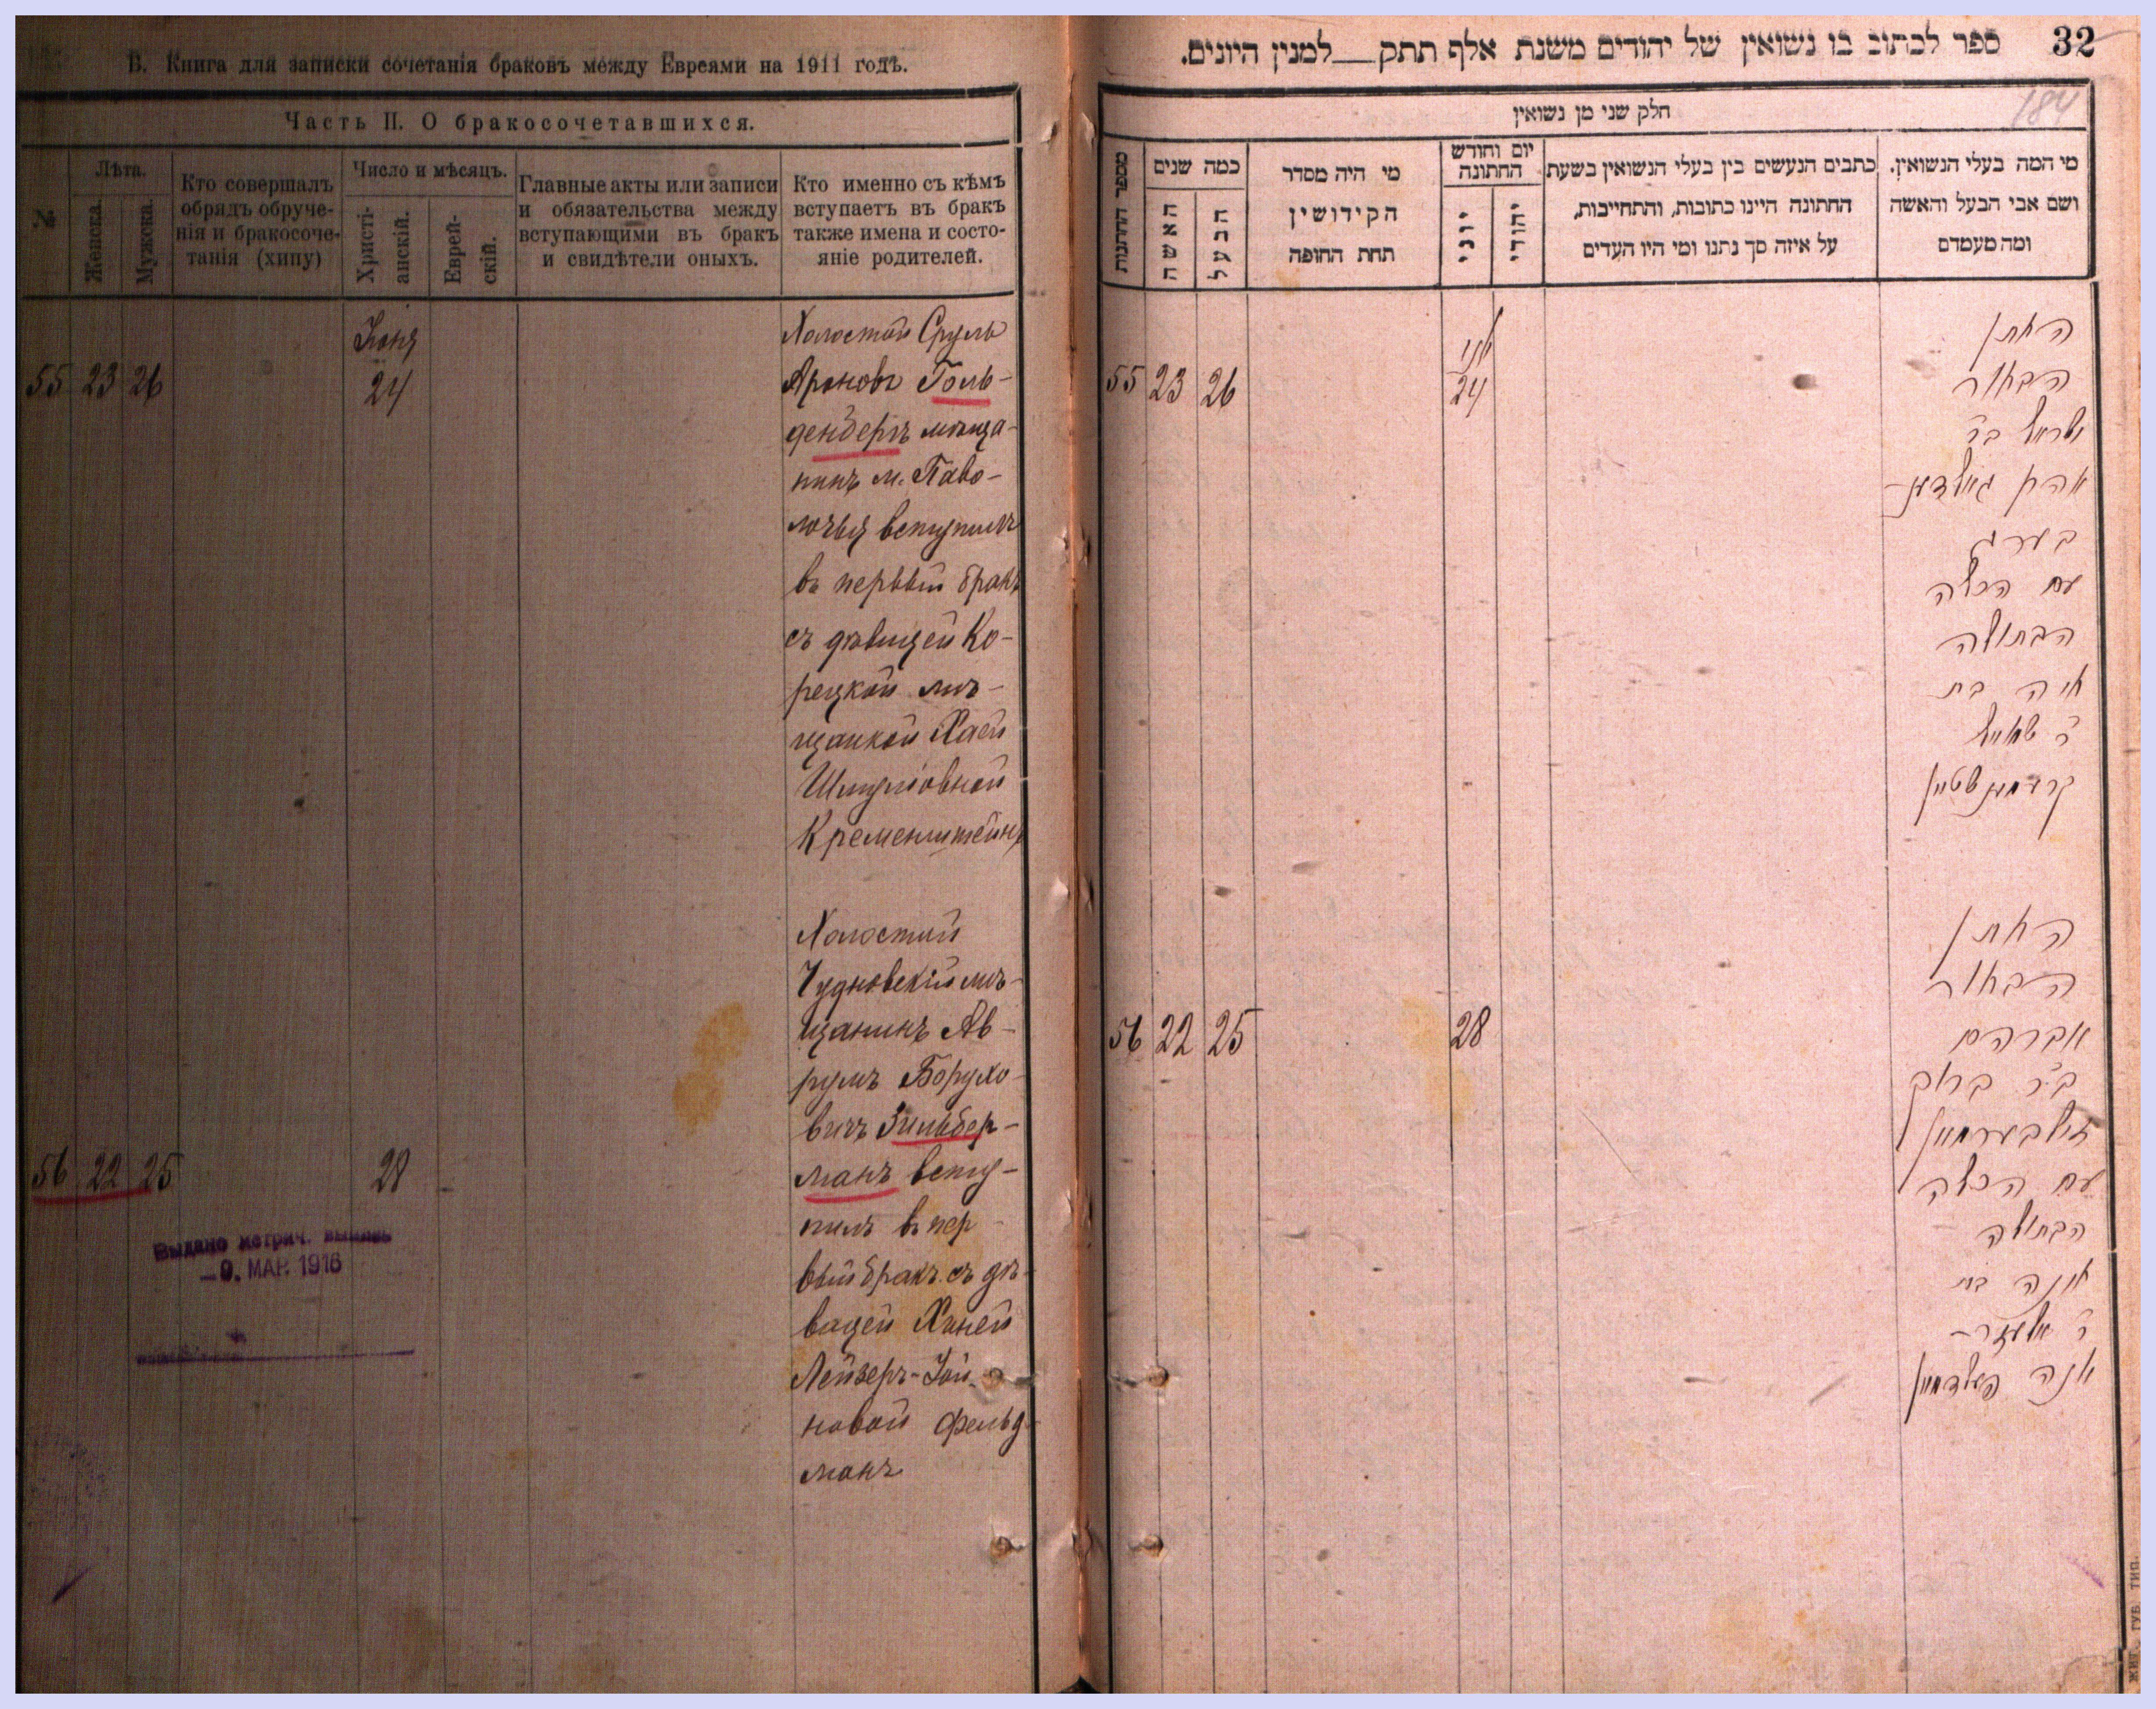 В. Книга для записки сочетанія браковъ между Евреями на 1911 годъ.
Часть II. О бракосочетавшихся.
№
Лѣта.
Женска.
Мужска.
Кто совершалъ
обрядъ обруче-
нія и бракосоче-
танія (хипу)
Число и мѣсяцъ.
Христі-
анскій.
Еврей-
скій.
Главные акты или записи
и обязательства между
вступающими въ бракъ
и свидѣтели оныхъ.
Кто именно съ кѣмъ
вступаетъ въ бракъ
также имена и состо-
яніе родителей.
Іюня
55 23 26 24
Холостой Сруль
Ароновъ Голь-
денберъ мѣща-
нинъ м. Паво-
лочья вступилъ
въ первый бракъ
съ дѣвицей Ко-
рецкой мѣ-
щанкой Хаей
Шмулiовной
Кременштейнъ
56 22 25 28
Холостой
Чудновскій мѣ-
щанинъ Ав-
румъ Борухо-
вичъ Зильбер-
манъ всту-
пилъ въ пер
вый бракъ съ дѣ-
вицей Ханей
Лейзеръ-Іой
новой Фельд-
манъ
Выдано метрич. выпись
—9. МАР. 1916
32
ספר לכתוב בו נשואין של יהודים משנת אלף תתק__למנין היונים.
184
חלק שני מן נשואין
מספר החתונות
כמה שנים
האשה
הבעל
מי היה מסדר
הקידושין
תחת החופה
יום וחודש
החתונה
יוני
יהודי
כתבים הנעשים בין בעלי הנשואין בשעת
החתונה היינו כתובות, והתחייבות,
על איזה סך נתנו ומי היו העדים
מי המה בעלי הנשואין.
ושם אבי הבעל והאשה
ומה מעמדם
יוני
55 23 26 24
החתן
הבחור
ישראל בר
אהרן גאלדען-
בערג
עם הכלה
הבתולה
חיה בת
ר שמואל
קרעמענשטיין
56 22 25 28
החתן
הבחור
אברהם
ב״ר ברוך
זילבערמאן
עם הכלה
הבתולה
חנה בת
ר אלעזר-
יונה פעלדמאן
жит. губ. тип.